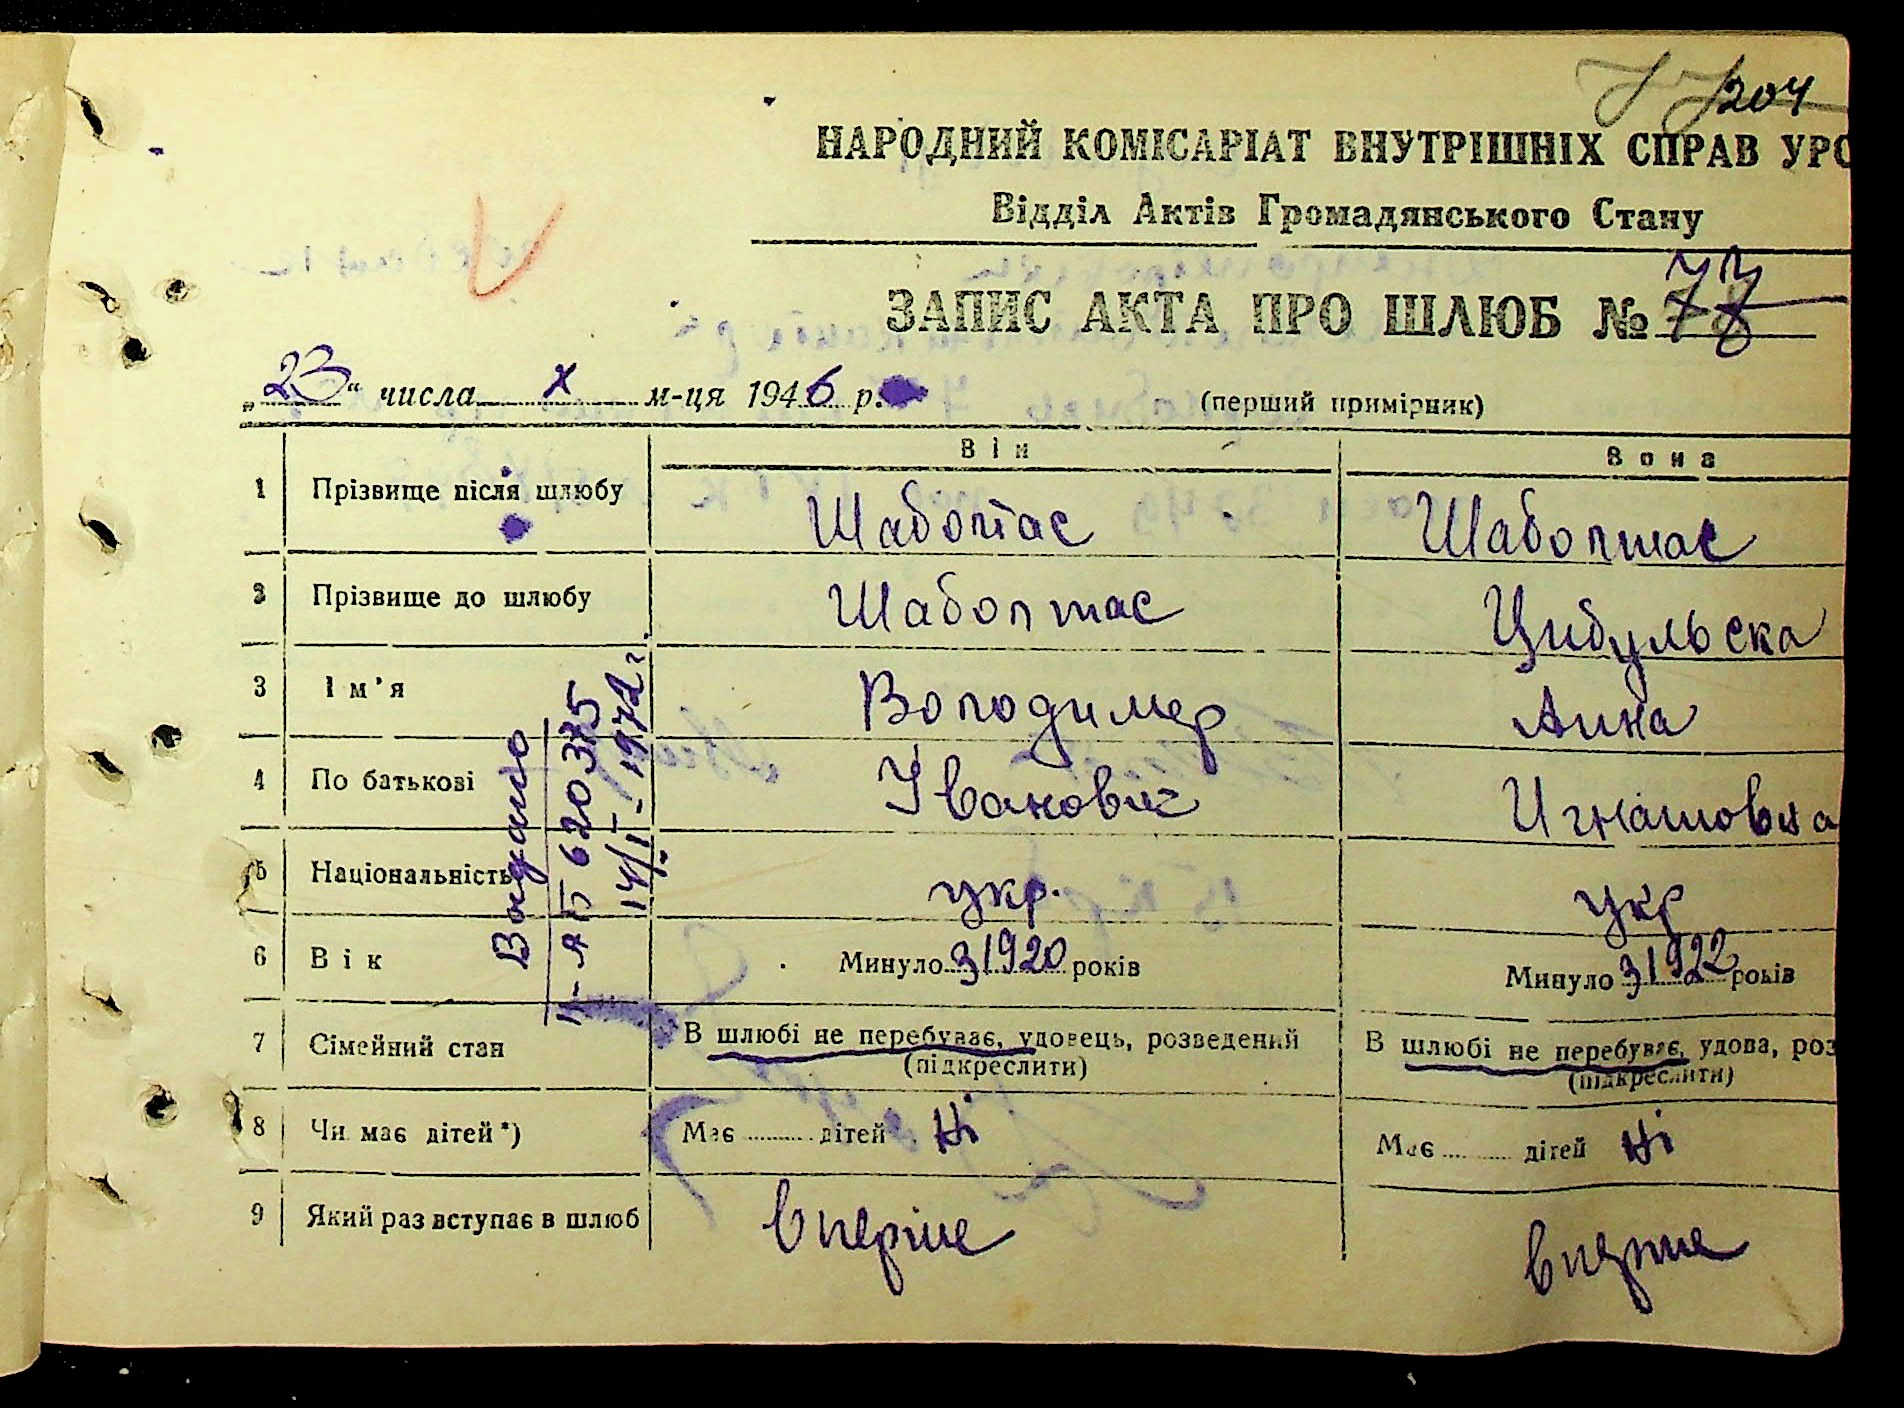 204
НАРОДНИЙ КОМІСАРІАТ ВНУТРІШНІХ СПРАВ УРС
Відділ Актів Громадянського Стану
ЗАПИС АКТА ПРО ШЛЮБ № 77
„23“ числа X м-ця 1946 р.
(перший примірник)
Він Вона
1 Прізвище після шлюбу Шабоптас Шабоптас
2 Прізвище до шлюбу Шабоптас Цибульска
3 Ім'я Володимер Анна
4 По батькові Іванович Игнатовна
5 Національність укр. укр
6 Вік Минуло з 1920 років Минуло з 1922 років
7 Сімейний стан В шлюбі не перебуває, удовець, розведений В шлюбі не перебуває, удова, роз
(підкреслити) (підкреслити)
8 Чи має дітей*) Має дітей Ні Має дітей Ні
9 Який раз вступає в шлюб вперше вперше
Видано
620375
14/I-1972г.